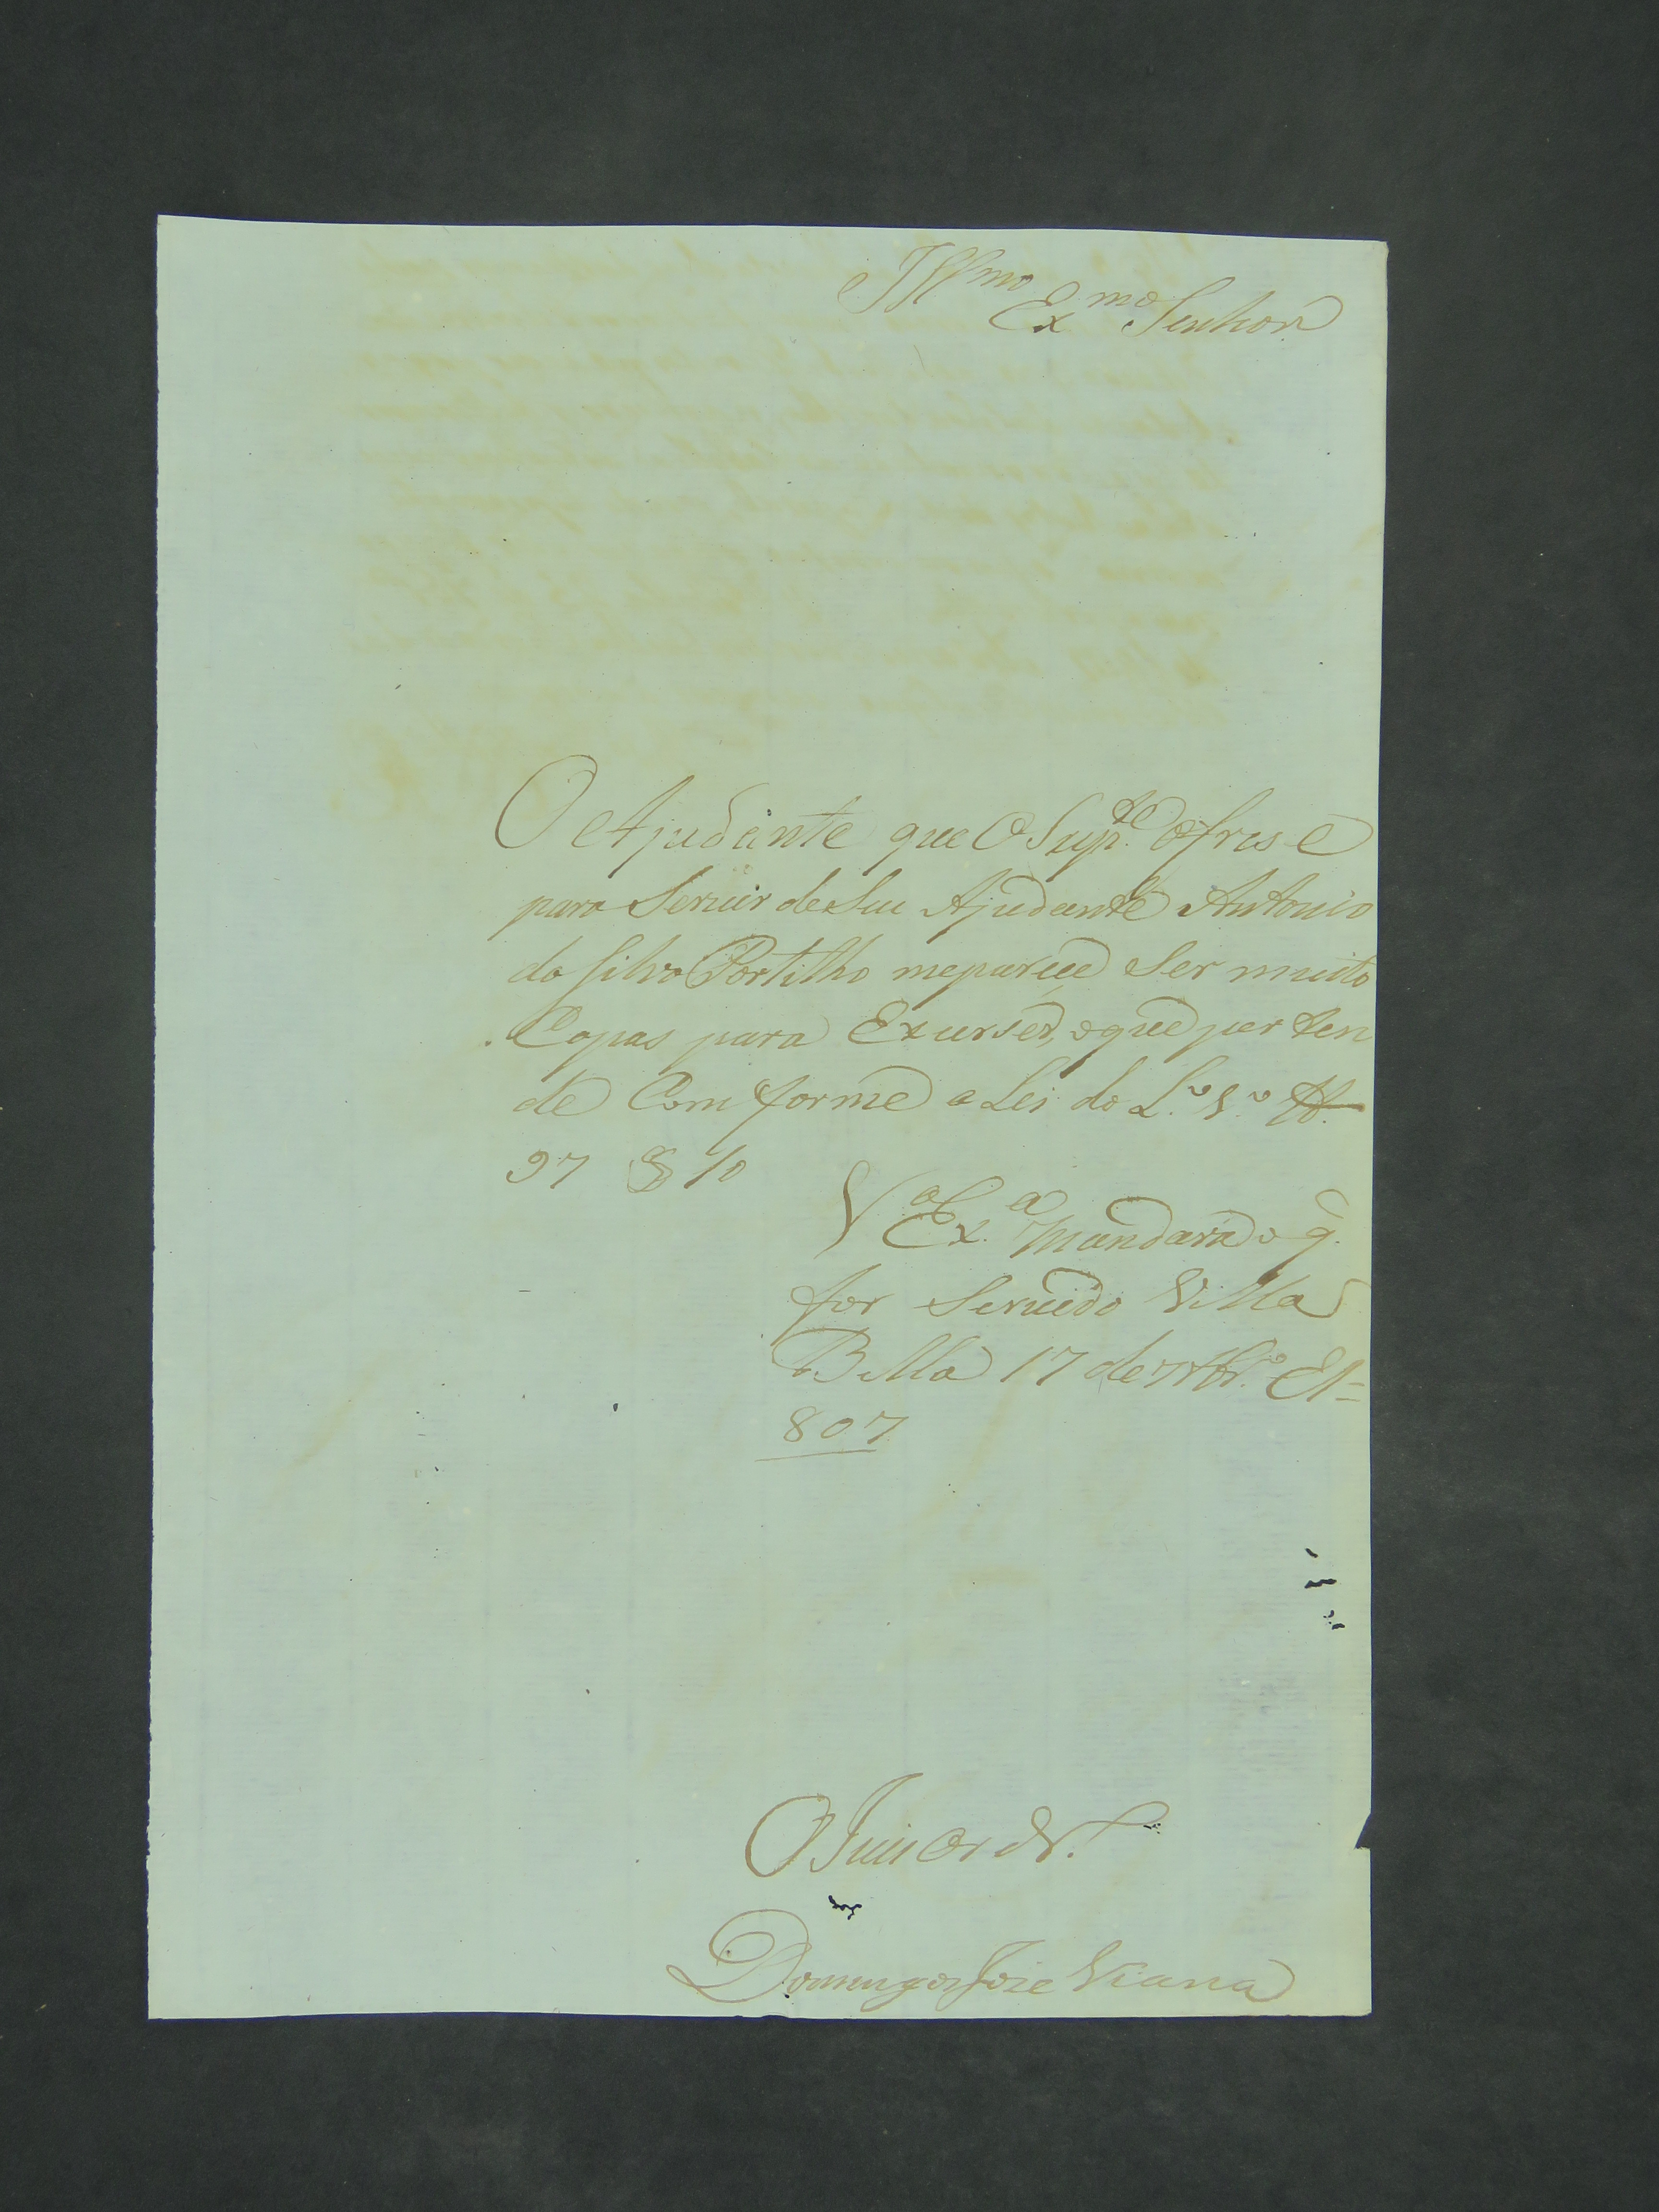 Illmo
Exmo Senhor
O Ajudante que O Supte ofrese
para Seruir de Seu Ajudante Antonio
da Silva Portilho me pareçe Ser muito
Capas para Exurser, o que perten
de Com forme a Lei do L.º 1.º tt.
97 § 10
V.a Ex.a Mandará o q.
for Seruido Villa
Bella 17 de 7br.º E 1=
807
O Juiz Ordr.
Domingos Joze Viana